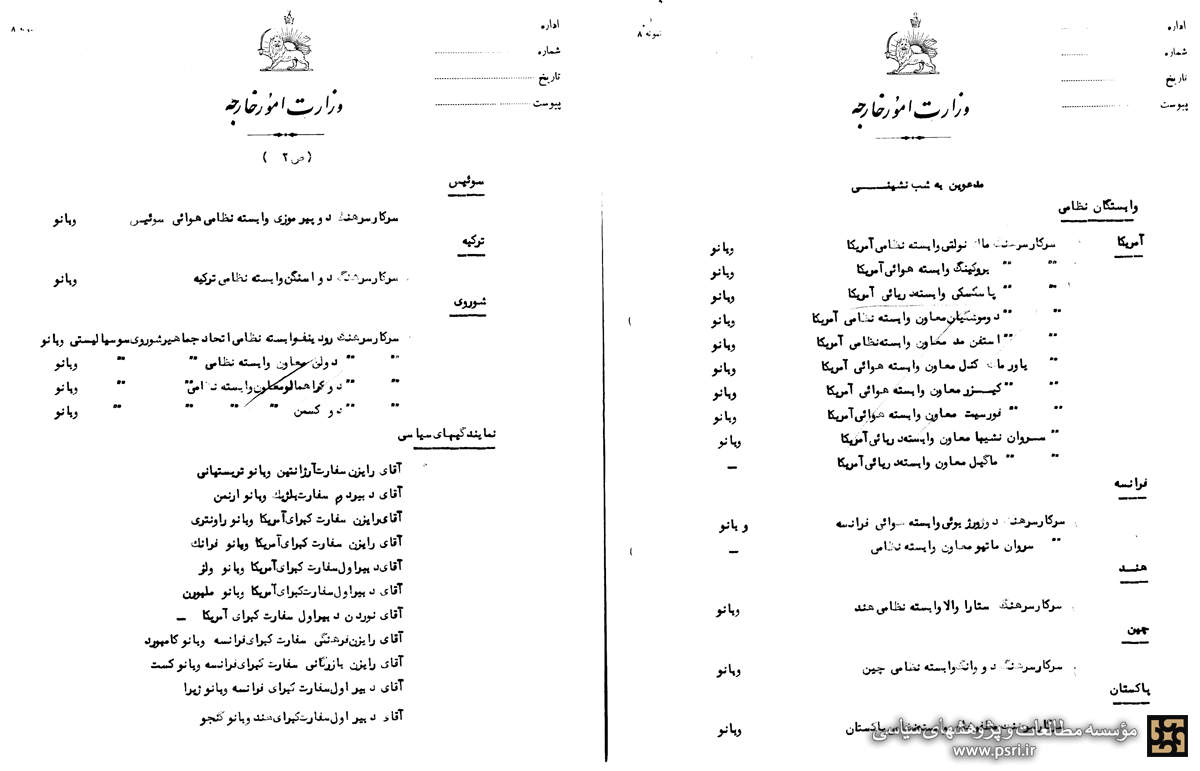 نمونه ۸
اداره
شماره
تاریخ
پیوست
وزارت امور خارجه
مدعوین به شب نشینی
وابستگان نظامی
آمریکا
سرکار سرهنگ ماك نولتی وابسته نظامی آمریکا وبانو
" " بروکینگ وابسته هوائی آمریکا وبانو
" " پاسکسکی وابسته دریائی آمریکا وبانو
" " دوموشکیان معاون وابسته نظامی آمریکا وبانو
" " استفن مد معاون وابسته نظامی آمریکا وبانو
" یاور ماك کندل معاون وابسته هوائی آمریکا وبانو
" " کیزر معاون وابسته هوائی آمریکا وبانو
" " فورسیت معاون وابسته هوائی آمریکا وبانو
" " سروان نشیها معاون وابسته دریائی آمریکا وبانو
" " ماگیل معاون وابسته دریائی آمریکا –
فرانسه
سرکار سرهنگ دوژرژ بوئی وابسته هوائی فرانسه و بانو
" سروان ماتیو معاون وابسته نظامی –
هند
سرکار سرهنگ ستارا والا وابسته نظامی هند وبانو
چین
سرکار سرهنگ دو وانگ وابسته نظامی چین وبانو
پاکستان
پاکستان وبانو
مؤسسه مطالعات و پژوهشهای سیاسی
www.psri.ir
۸
اداره
شماره
تاریخ
پیوست
وزارت امور خارجه
(ص ۲)
سوئیس
سرکار سرهنگ دو پیر موزی وابسته نظامی هوائی سوئیس وبانو
ترکیه
سرکار سرهنگ دو اسفگن وابسته نظامی ترکیه وبانو
شوروی
سرکار سرهنگ رودینف وابسته نظامی اتحاد جماهیر شوروی سوسیالیستی وبانو
" " دولن معاون وابسته نظامی " " وبانو
" " دو معاون وابسته نظامی " " وبانو
" " دو کسمن " " " " وبانو
نمایندگیهای سیاسی
آقای رایزن سفارت آرژانتین وبانو تریستهانی
آقای دبیر دوم سفارت بلژیك وبانو ارنمن
آقای رایزن سفارت کبرای آمریکا وبانو راونتری
آقای رایزن سفارت کبرای آمریکا وبانو فرانك
آقای دبیر اول سفارت کبرای آمریکا وبانو ولز
آقای دبیر اول سفارت کبرای آمریکا وبانو ملبورن
آقای نوردن دبیر اول سفارت کبرای آمریکا –
آقای رایزن فرهنگی سفارت کبرای فرانسه وبانو کامبورد
آقای رایزن بازرگانی سفارت کبرای فرانسه وبانو کست
آقای دبیر اول سفارت کبرای فرانسه وبانو ژیرا
آقای دبیر اول سفارت کبرای هند وبانو گنجو